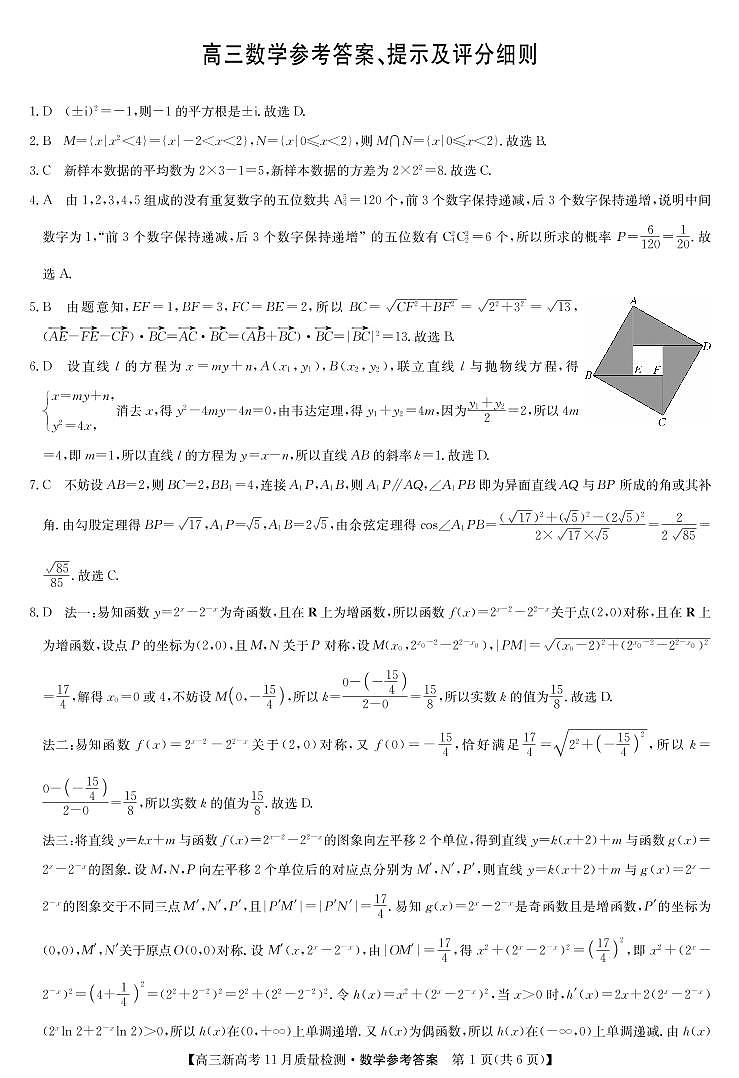 高三数学参考答案、提示及评分细则
1. D (±i)²=-1,则-1的平方根是±i.故选D.
2. B M={x|x²<4}={x|-2<x<2},N={x|0≤x<2},则M∩N={x|0≤x<2}.故选B.
3. C 新样本数据的平均数为2×3-1=5,新样本数据的方差为2×2²=8.故选C.
4. A 由1,2,3,4,5组成的没有重复数字的五位数共A⁵₅=120个,前3个数字保持递减,后3个数字保持递增,说明中间
数字为1,“前3个数字保持递减,后3个数字保持递增”的五位数有C²₄C²₂=6个,所以所求的概率P=6/120=1/20.故
选A.
5. B 由题意知,EF=1,BF=3,FC=BE=2,所以BC=√(CF²+BF²)=√(2²+3²)=√13,
(AE→-FE→-CF→)·BC→=AC→·BC→=(AB→+BC→)·BC→=|BC→|²=13.故选B.
A
D
E F
B
C
6. D 设直线l的方程为x=my+n,A(x₁,y₁),B(x₂,y₂),联立直线l与抛物线方程,得
{x=my+n, y²=4x, 消去x,得y²-4my-4n=0,由韦达定理,得y₁+y₂=4m,因为(y₁+y₂)/2=2,所以4m
=4,即m=1,所以直线l的方程为y=x-n,所以直线AB的斜率k=1.故选D.
7. C 不妨设AB=2,则BC=2,BB₁=4,连接A₁P,A₁B,则A₁P∥AQ,∠A₁PB即为异面直线AQ与BP所成的角或其补
角.由勾股定理得BP=√17,A₁P=√5,A₁B=2√5,由余弦定理得cos∠A₁PB=((√17)²+(√5)²-(2√5)²)/(2×√17×√5)=2/(2√85)=
√85/85.故选C.
8. D 法一:易知函数y=2ˣ-2⁻ˣ为奇函数,且在R上为增函数,所以函数f(x)=2ˣ⁻²-2²⁻ˣ关于点(2,0)对称,且在R上
为增函数,设点P的坐标为(2,0),且M,N关于P对称,设M(x₀,2^(x₀-2)-2^(2-x₀)),|PM|=√((x₀-2)²+(2^(x₀-2)-2^(2-x₀))²)
=17/4,解得x₀=0或4,不妨设M(0,-15/4),所以k=(0-(-15/4))/(2-0)=15/8,所以实数k的值为15/8.故选D.
法二:易知函数f(x)=2ˣ⁻²-2²⁻ˣ关于(2,0)对称,又f(0)=-15/4,恰好满足17/4=√(2²+(-15/4)²),所以k=
(0-(-15/4))/(2-0)=15/8,所以实数k的值为15/8.故选D.
法三:将直线y=kx+m与函数f(x)=2ˣ⁻²-2²⁻ˣ的图象向左平移2个单位,得到直线y=k(x+2)+m与函数g(x)=
2ˣ-2⁻ˣ的图象.设M,N,P向左平移2个单位后的对应点分别为M′,N′,P′,则直线y=k(x+2)+m与g(x)=2ˣ-
2⁻ˣ的图象交于不同三点M′,N′,P′,且|P′M′|=|P′N′|=17/4.易知g(x)=2ˣ-2⁻ˣ是奇函数且是增函数,P′的坐标为
(0,0),M′,N′关于原点O(0,0)对称.设M′(x,2ˣ-2⁻ˣ),由|OM′|=17/4,得x²+(2ˣ-2⁻ˣ)²=(17/4)²,即x²+(2ˣ-
2⁻ˣ)²=(4+1/4)²=(2²+2⁻²)²=2²+(2²-2⁻²)².令h(x)=x²+(2ˣ-2⁻ˣ)²,当x>0时,h′(x)=2x+2(2ˣ-2⁻ˣ)
(2ˣln 2+2⁻ˣln 2)>0,所以h(x)在(0,+∞)上单调递增.又h(x)为偶函数,所以h(x)在(-∞,0)上单调递减.由h(x)
【高三新高考11月质量检测·数学参考答案 第1页(共6页)】